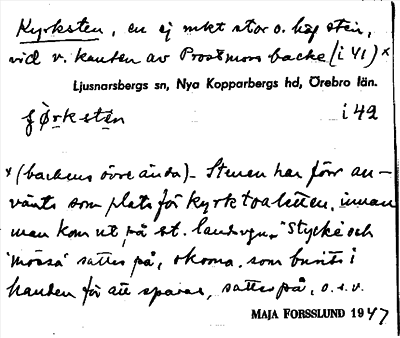 Kyrksten, en ej mkt stor o. hög sten,
vid v. kanten av Prostmors backe (i 41) x
Ljusnarsbergs sn, Nya Kopparbergs hd, Örebro län.
i 42
x (backens övre ända). Stenen har förr an-
vänts som plats för kyrktoaletten, innan
man kom ut på st. landsvgn. "Stycke och
mössa" sattes på, skorna, som burits i
handen för att sparas, sattes på, o.s.v.
MAJA FORSSLUND 1947